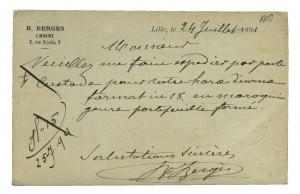 B. BERGÈS
LIBRAIRE
8, rue Royale, 8
Lille, le 24 Juillet 1894
Monsieur
Veuillez me faire expédier par poste
Custode pour votre horae diurnae
format in 18, en maroquin
genre portefeuille fermé.
Salutations sincères
B. Bergès
25-7-94